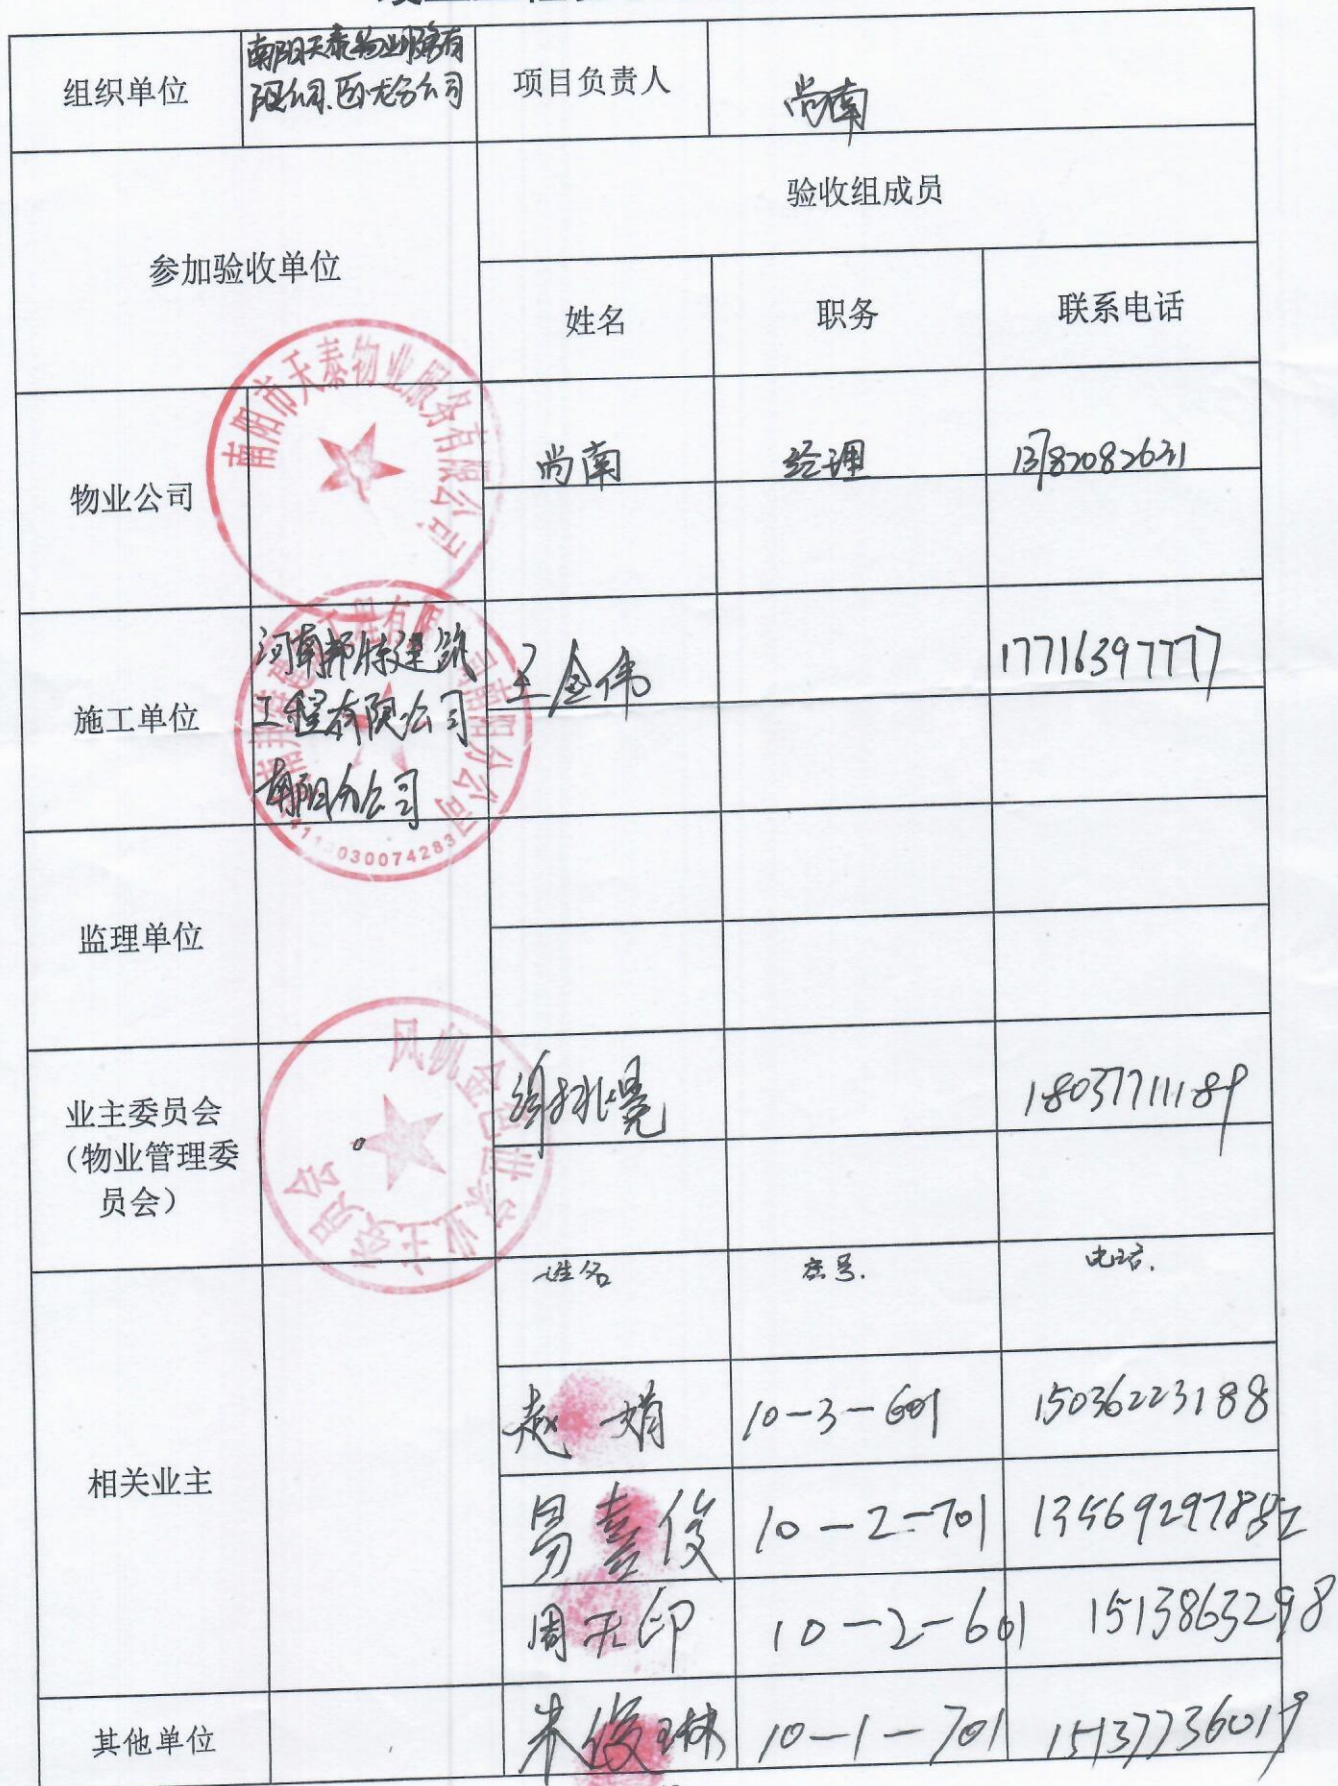 组织单位
南阳天泰物业服务有
限公司.卧龙分公司
项目负责人
尚南
参加验收单位
验收组成员
姓名
职务
联系电话
南阳市天泰物业服务有限公司
物业公司
尚南
经理
13782082631
施工单位
河南邦恒建筑
工程有限公司
南阳分公司
王金伟
17716397777
监理单位
业主委员会
(物业管理委
员会)
风帆金色世家业主委员会
18037711189
姓名
房号.
电话.
相关业主
赵娟
10-3-601
15036223188
易喜俊
10-2-701
13569297852
周天印
10-2-601
1513863298
其他单位
朱俊琳
10-1-701
15137736019